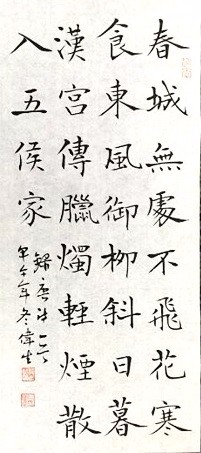 春城無處不飛花寒
食東風御柳斜日暮
漢宮傳臘燭輕煙散
入五侯家
錄唐詩一首
甲午年冬偉生